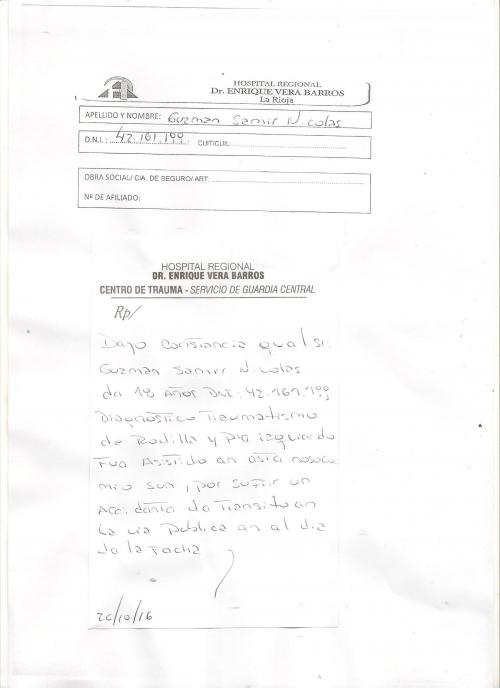 HOSPITAL REGIONAL
Dr. ENRIQUE VERA BARROS
La Rioja
APELLIDO Y NOMBRE: Guzman Samir Nicolas
D.N.I. : 42.161.199 CUIT/CUIL:
OBRA SOCIAL/ CIA. DE SEGURO/ ART:
Nº DE AFILIADO:
HOSPITAL REGIONAL
DR. ENRIQUE VERA BARROS
CENTRO DE TRAUMA - SERVICIO DE GUARDIA CENTRAL
Rp/
Dejo Constancia que el Sr.
Guzman Samir Nicolas
de 18 Años DNI: 42.161.199
Diagnóstico Traumatismo
de Rodilla y Pie izquierdo
Fue Asistido en este nosoco
mio, por sufrir un
Accidente de Transito en
la via Publica en el dia
de la Fecha
/10/16